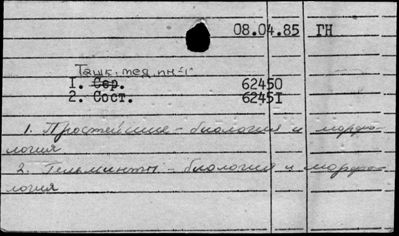 08.04.85 ГН
Ташк. мед. ин-т
I. Сер. 62450
2. Сост. 6245I
1. Простейшие - биология и морфо-
логия
2. Гельминты - биология и морфо-
логия